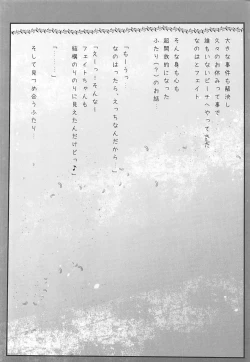 大きな事件も解決し
久々のお休みって事で
誰もいないビーチへやってきた
なのはとフェイト
そんな身も心も
超開放的になった
ふたり(?)のお話
「もーっっ
なのはったら、えっちなんだから」
「えーっ…そんなー
フェイトちゃんも
結構のりのりに見えたんだけどっ♪」
「………」
そして見つめ合うふたり…